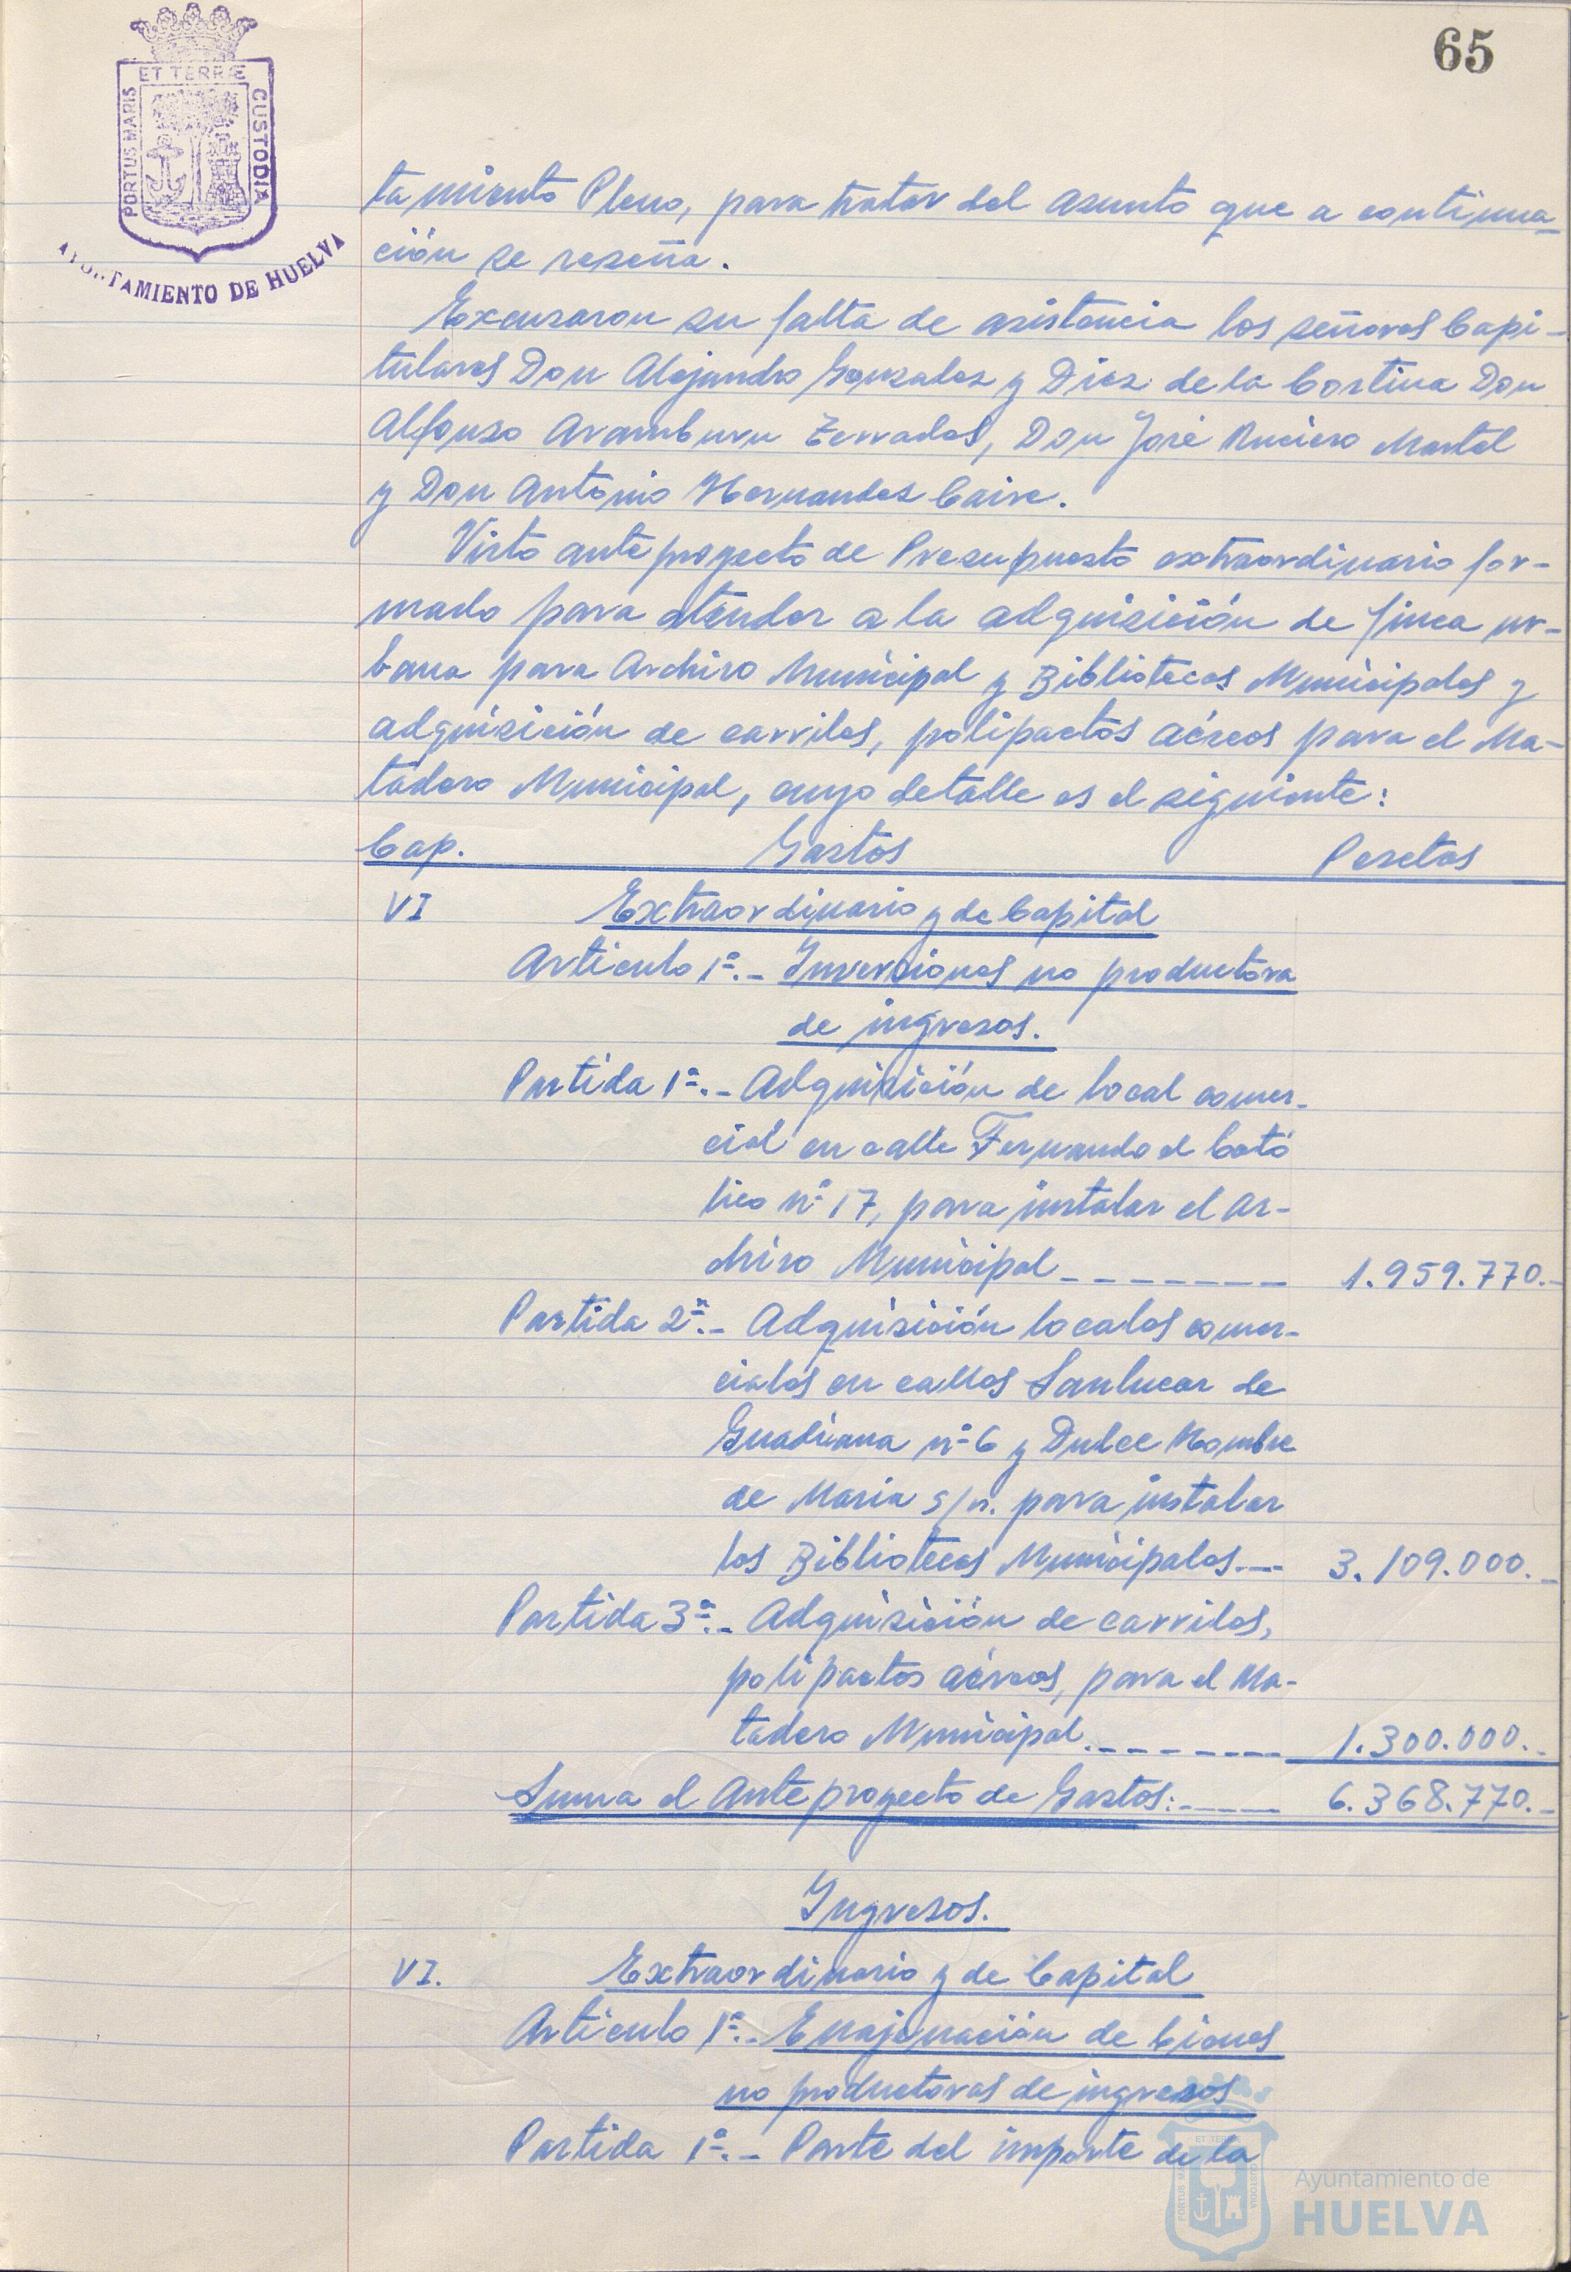 65
ET TERRÆ
PORTUS MARIS
CUSTODIA
AYUNTAMIENTO DE HUELVA
tamiento Pleno, para tratar del asunto que a continua-
ción se reseña.
Excusaron su falta de asistencia los señores Capi-
tulares Don Alejandro Gonzalez y Diez de la Cortina Don
Alfonso Aramburu Terrades, Don José Ruciero Martel
y Don Antonio Hernandez Caire.
Visto anteproyecto de Presupuesto extraordinario for-
mado para atender a la adquisición de finca ur-
bana para Archivo Municipal y Bibliotecas Municipales y
adquisición de carriles, polipactos aéreos para el Ma-
tadero Municipal, cuyo detalle es el siguiente:
Cap. Gastos Pesetas
VI Extraordinario y de Capital
Articulo 1º.- Inversiones no productora
de ingresos.
Partida 1ª.- Adquisición de local comer-
cial en calle Fernando el Cató
lico nº 17, para instalar el Ar-
chivo Municipal_ _ _ _ _ _ _ 1.959.770.-
Partida 2ª.- Adquisición locales comer-
ciales en calles Sanlucar de
Guadiana nº 6 y Dulce Nombre
de Maria s/n. para instalar
las Bibliotecas Municipales.-- 3.109.000.-
Partida 3ª.- Adquisición de carriles,
polipactos aéreos, para el Ma-
tadero Municipal_ _ _ _ _ _ _ 1.300.000.-
Suma el Anteproyecto de Gastos:----- 6.368.770.-
Ingresos.
VI. Extraordinario y de Capital
Articulo 1º.- Enajenación de bienes
no productoras de ingresos
Partida 1ª.- Parte del importe de la
Ayuntamiento de
HUELVA